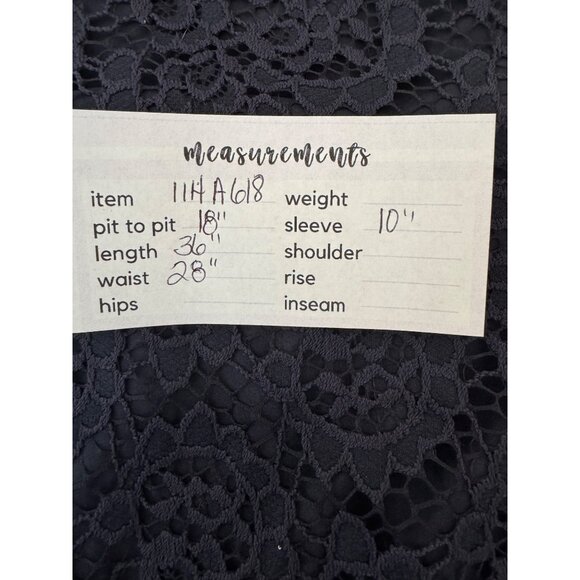 measurements
item 11H A618 weight
pit to pit 18" sleeve 10"
length 36" shoulder
waist 28" rise
hips inseam